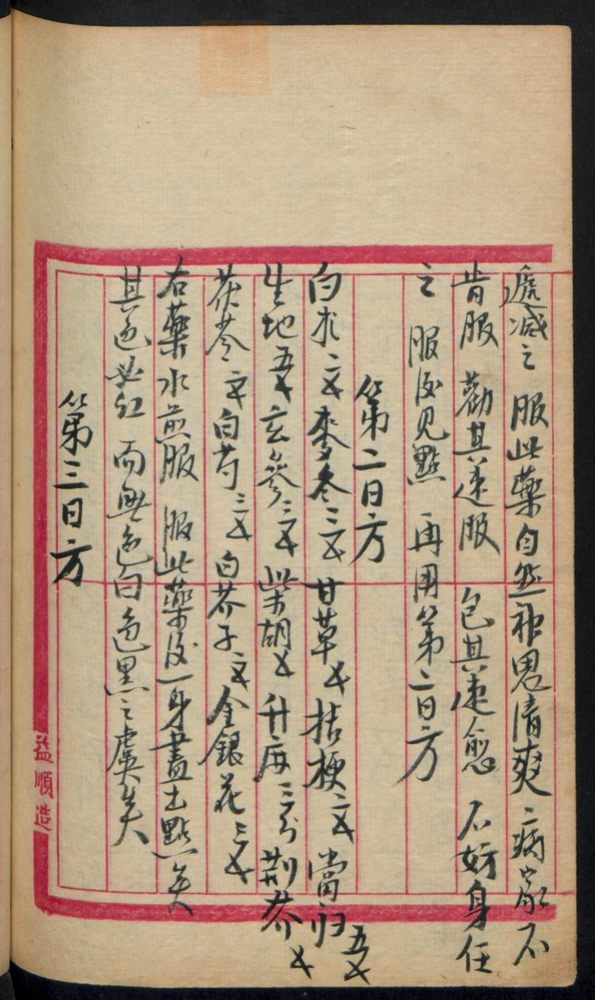 遞减之 服此藥自然神思清爽 二病家不
肯服 勸其速服 包其速愈 不妨身任
之 服後见點 再用第二日方
第二日方
白朮二戈 麥冬三戈 甘草戈 桔梗二戈 當归五戈
生地五戈 玄參三戈 柴胡戈 升麻三分 荆芥戈
茯苓二戈 白芍三戈 白芥子二戈 金銀花三戈
右藥水煎服 服此藥後一身盡出點矣
其色必红 而無色白色黑之虞矣
第三日方
益順造